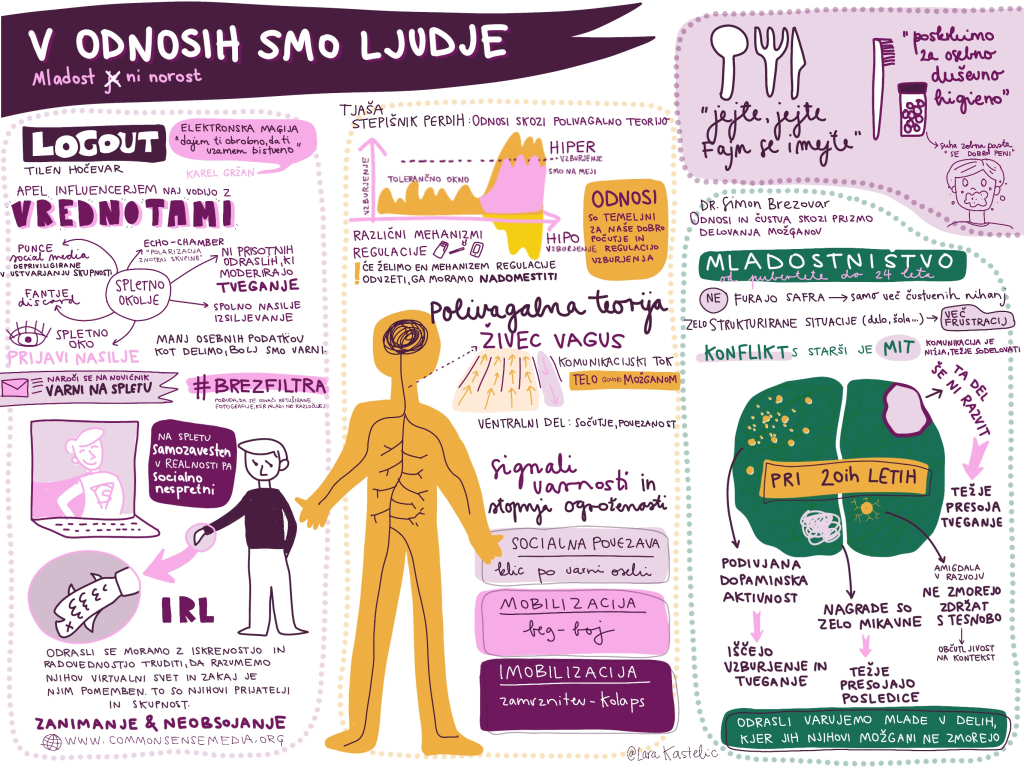 V ODNOSIH SMO LJUDJE
Mladost je ni norost
LOGOUT
TILEN HOČEVAR
ELEKTRONSKA MAGIJA
"dajem ti obrobno, da ti
vzamem bistveno"
KAREL GRŽAN
APEL INFLUENCERJEM NAJ VODIJO Z
VREDNOTAMI
PUNCE
social media
DEPRIVILIGIRANE
V USTVARJANJU SKUPNOSTI
ECHO-CHAMBER
"POLARIZACIJA
ZNOTRAJ SKUPINE"
NI PRISOTNIH
ODRASLIH, KI
MODERIRAJO
TVEGANJE
SPLETNO
OKOLJE
FANTJE
discord
SPOLNO NASILJE
IZSILJEVANJE
SPLETNO
OKO
PRIJAVI NASILJE
MANJ OSEBNIH PODATKOV
KOT DELIMO, BOLJ SMO VARNI.
NAROČI SE NA NOVIČNIK
VARNI NA SPLETU
#BREZFILTRA
POBUDA, DA SE OZNAČI RETUŠIRANE
FOTOGRAFIJE, KER MLADI NE RAZLOČUJEJ
NA SPLETU
samozavesten
V REALNOSTI PA
socialno
nespretni
IRL
ODRASLI SE MORAMO Z ISKRENOSTJO IN
RADOVEDNOSTJO TRUDITI, DA RAZUMEMO
NJIHOV VIRTUALNI SVET IN ZAKAJ JE
NJIM POMEMBEN. TO SO NJIHOVI PRIJATELJI
IN SKUPNOST.
ZANIMANJE & NEOBSOJANJE
WWW.COMMONSENSEMEDIA.ORG
TJAŠA
STEPIŠNIK PERDIH: ODNOSI SKOZI POLIVAGALNO TEORIJO
VZBURJENJE
TOLERANČNO OKNO
HIPER
VZBURJENJE
SMO NA MEJI
HIPO
VZBURJENJE
RAZLIČNI MEHANIZMI
REGULACIJE
! ČE ŽELIMO EN MEHANIZEM REGULACIJE
ODVZETI, GA MORAMO NADOMESTITI
ODNOSI
SO TEMELJNI
ZA NAŠE DOBRO
POČUTJE IN
REGULACIJO
VZBURJENJA
Polivagalna teorija
ŽIVEC VAGUS
KOMUNIKACIJSKI TOK
TELO GOVORI MOŽGANOM
VENTRALNI DEL: SOČUTJE, POVEZANOST
signali
varnosti in
stopnje ogroženosti
SOCIALNA POVEZAVA
klic po varni osebi
MOBILIZACIJA
beg-boj
IMOBILIZACIJA
zamrznitev-kolaps
@Lara Kastelic
"jejte, jejte
Fajn se imejte"
"poskrbimo
za osebno
duševno
higieno"
suha zobna pasta
"SE DOBRO PENI"
DR. Simon Brezovar
ODNOSI IN ČUSTVA SKOZI PRIZMO
DELOVANJA MOŽGANOV
MLADOSTNIŠTVO
od pubertete do 24 leta
NE FURAJO SAFRA → samo več čustvenih nihanj
ZELO STRUKTURIRANE SITUACIJE (delo, šola...) → VEČ
FRUSTRACIJ
KONFLIKT S STARŠI JE MIT
KOMUNIKACIJA JE
NIŽJA, TEŽJE SODELOVATI
TA DEL
ŠE NI RAZVIT
PRI 20ih LETIH
TEŽJE
PRESOJA
TVEGANJE
PODIVJANA
DOPAMINSKA
AKTIVNOST
IŠČEJO
VZBURJENJE IN
TVEGANJE
NAGRADE SO
ZELO MIKAVNE
TEŽJE
PRESOJAJO
POSLEDICE
AMIGDALA
V RAZVOJU
NE ZMOREJO
ZDRŽAT
S TESNOBO
OBČUTLJIVOST
NA KONTEKST
ODRASLI VARUJEMO MLADE V DELIH,
KJER JIH NJIHOVI MOŽGANI NE ZMOREJO